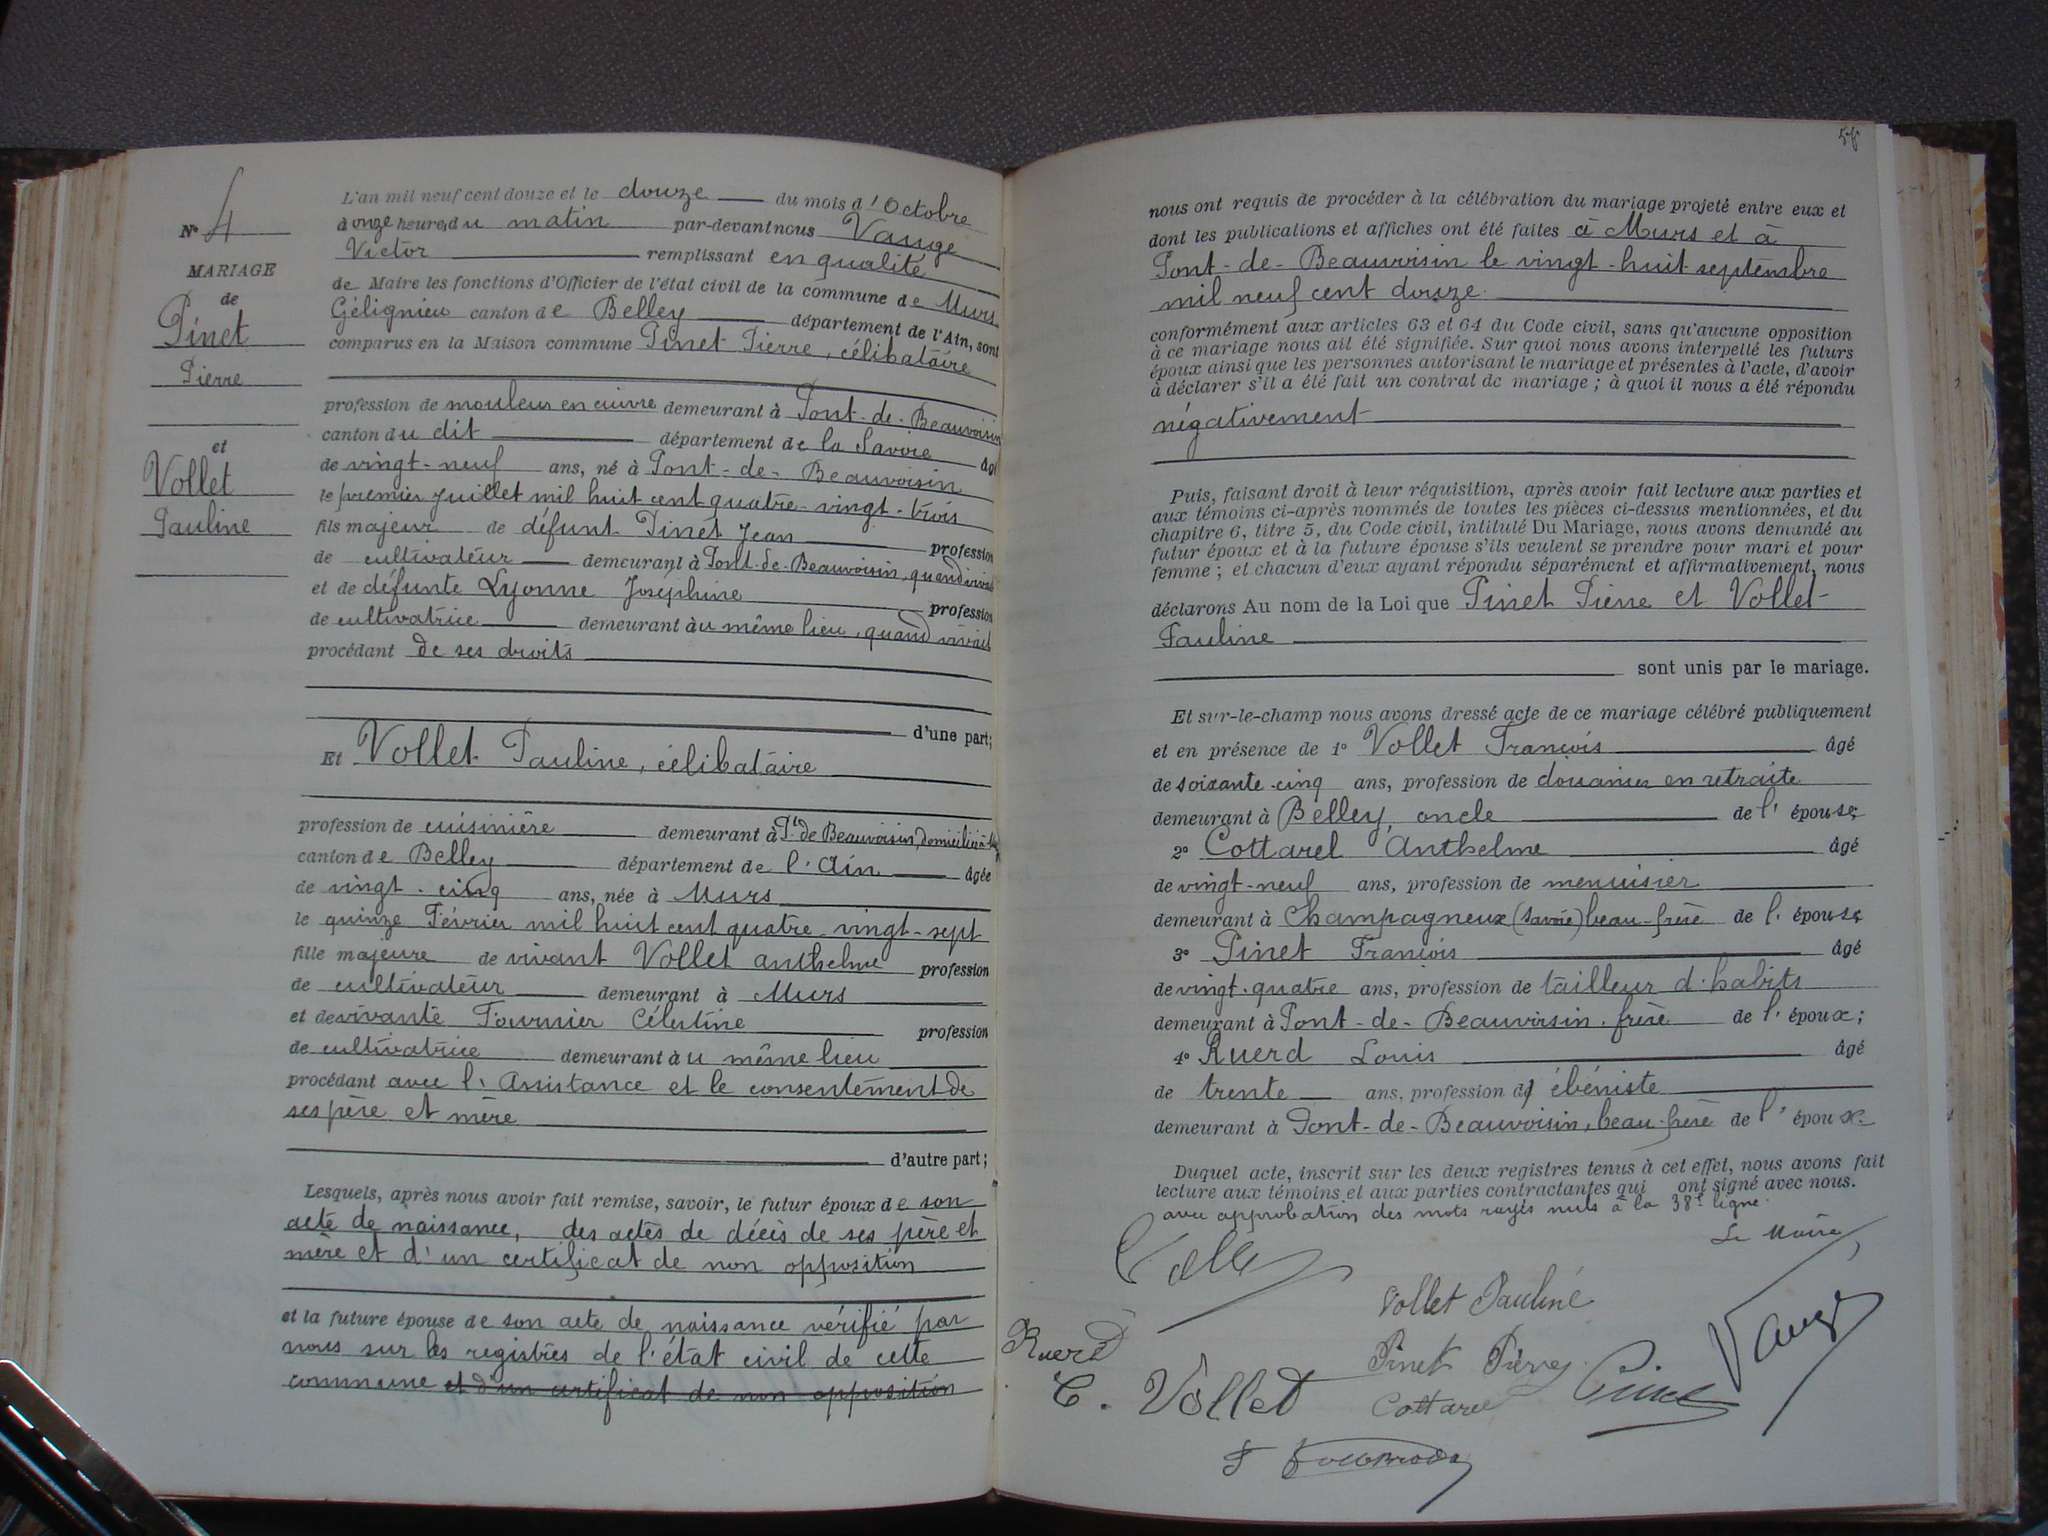 N° 4
MARIAGE
de
Pinet
Pierre
et
Vollet
Pauline
L'an mil neuf cent douze et le douze du mois d'Octobre
à onze heures du matin par-devant nous Vauge
Victor remplissant en qualité
de Maire les fonctions d'Officier de l'état civil de la commune de Murs
Gélignieu canton de Belley département de l'Ain, sont
comparus en la Maison commune Pinet Pierre, célibataire
profession de mouleur en cuivre demeurant à Pont-de-Beauvoisin
canton du dit département de la Savoie âgé
de vingt-neuf ans, né à Pont-de-Beauvoisin
le premier Juillet mil huit cent quatre-vingt-trois
fils majeur de défunt Pinet Jean profession
de cultivateur demeurant à Pont-de-Beauvoisin, quand
et de défunte Lyonne Joséphine profession
de cultivatrice demeurant au même lieu, quand vivait
procédant de ses droits
d'une part;
Et Vollet Pauline, célibataire
profession de cuisinière demeurant à Pt de Beauvoisin, domiciliée à
canton de Belley département de l'Ain âgée
de vingt-cinq ans, née à Murs
le quinze Février mil huit cent quatre-vingt-sept
fille majeure de vivant Vollet anthelme profession
de cultivateur demeurant à Murs
et de vivante Fournier Célestine profession
de cultivatrice demeurant au même lieu
procédant avec l'Assistance et le consentement de
ses père et mère
d'autre part;
Lesquels, après nous avoir fait remise, savoir, le futur époux de son
acte de naissance, des actes de décès de ses père et
mère et d'un certificat de non opposition
et la future épouse de son acte de naissance vérifié par
nous sur les registres de l'état civil de cette
commune et d'un certificat de non opposition
58
nous ont requis de procéder à la célébration du mariage projeté entre eux et
dont les publications et affiches ont été faites à Murs et à
Pont-de-Beauvoisin le vingt-huit septembre
mil neuf cent douze.
conformément aux articles 63 et 64 du Code civil, sans qu'aucune opposition
à ce mariage nous ait été signifiée. Sur quoi nous avons interpellé les futurs
époux ainsi que les personnes autorisant le mariage et présentes à l'acte, d'avoir
à déclarer s'il a été fait un contrat de mariage; à quoi il nous a été répondu
négativement
Puis, faisant droit à leur réquisition, après avoir fait lecture aux parties et
aux témoins ci-après nommés de toutes les pièces ci-dessus mentionnées, et du
chapitre 6, titre 5, du Code civil, intitulé Du Mariage, nous avons demandé au
futur époux et à la future épouse s'ils veulent se prendre pour mari et pour
femme; et chacun d'eux ayant répondu séparément et affirmativement, nous
déclarons Au nom de la Loi que Pinet Pierre et Vollet
Pauline
sont unis par le mariage.
Et sur-le-champ nous avons dressé acte de ce mariage célébré publiquement
et en présence de 1° Vollet François âgé
de soixante-cinq ans, profession de douanier en retraite
demeurant à Belley, oncle de l'épouse;
2° Cottarel Anthelme âgé
de vingt-neuf ans, profession de menuisier
demeurant à Champagneux (Savoie) beau-frère de l'épouse
3° Pinet François âgé
de vingt-quatre ans, profession de tailleur d'habits
demeurant à Pont-de-Beauvoisin, frère de l'époux;
4° Ruerd Louis âgé
de trente ans, profession d'ébéniste
demeurant à Pont-de-Beauvoisin, beau-frère de l'époux.
Duquel acte, inscrit sur les deux registres tenus à cet effet, nous avons fait
lecture aux témoins et aux parties contractantes qui ont signé avec nous.
avec approbation des mots rayés nuls à la 38e ligne.
Le Maire
Vollet
Vollet Pauline
Ruerd
Pinet Pierre
Pinet
Vauge
C. Vollet
Cottarel